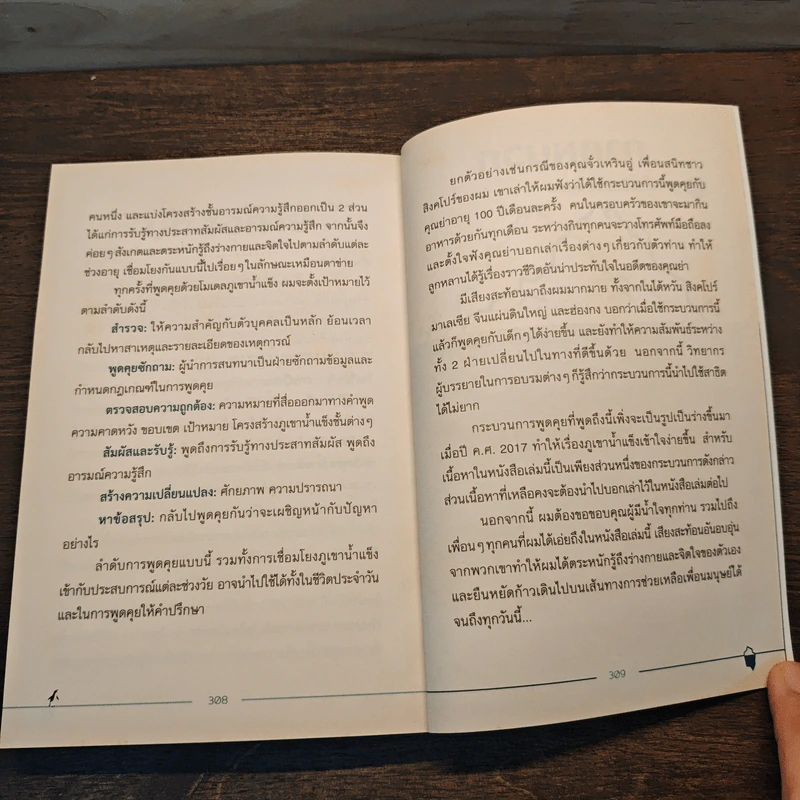 คนหนึ่ง และแบ่งโครงสร้างชั้นอารมณ์ความรู้สึกออกเป็น 2 ส่วน
ได้แก่การรับรู้ทางประสาทสัมผัสและอารมณ์ความรู้สึก จากนั้นจึง
ค่อยๆ สังเกตและตระหนักรู้ถึงร่างกายและจิตใจไปตามลำดับแต่ละ
ช่วงอายุ เชื่อมโยงกันแบบนี้ไปเรื่อยๆ ในลักษณะเหมือนตาข่าย
ทุกครั้งที่พูดคุยด้วยโมเดลภูเขาน้ำแข็ง ผมจะตั้งเป้าหมายไว้
ตามลำดับดังนี้
สำรวจ: ให้ความสำคัญกับตัวบุคคลเป็นหลัก ย้อนเวลา
กลับไปหาสาเหตุและรายละเอียดของเหตุการณ์
พูดคุยซักถาม: ผู้นำการสนทนาเป็นฝ่ายซักถามข้อมูลและ
กำหนดกฎเกณฑ์ในการพูดคุย
ตรวจสอบความถูกต้อง: ความหมายที่สื่อออกมาทางคำพูด
ความคาดหวัง ขอบเขต เป้าหมาย โครงสร้างภูเขาน้ำแข็งชั้นต่างๆ
สัมผัสและรับรู้: พูดถึงการรับรู้ทางประสาทสัมผัส พูดถึง
อารมณ์ความรู้สึก
สร้างความเปลี่ยนแปลง: ศักยภาพ ความปรารถนา
หาข้อสรุป: กลับไปพูดคุยกันว่าจะเผชิญหน้ากับปัญหา
อย่างไร
ลำดับการพูดคุยแบบนี้ รวมทั้งการเชื่อมโยงภูเขาน้ำแข็ง
เข้ากับประสบการณ์แต่ละช่วงวัย อาจนำไปใช้ได้ทั้งในชีวิตประจำวัน
และในการพูดคุยให้คำปรึกษา
308
ยกตัวอย่างเช่นกรณีของคุณจั่วเหวินอู่ เพื่อนสนิทชาว
สิงคโปร์ของผม เขาเล่าให้ผมฟังว่าได้ใช้กระบวนการนี้พูดคุยกับ
คุณย่าอายุ 100 ปีเดือนละครั้ง คนในครอบครัวของเขาจะมากิน
อาหารด้วยกันทุกเดือน ระหว่างกินทุกคนจะวางโทรศัพท์มือถือลง
และตั้งใจฟังคุณย่าบอกเล่าเรื่องต่างๆ เกี่ยวกับตัวท่าน ทำให้
ลูกหลานได้รู้เรื่องราวชีวิตอันน่าประทับใจในอดีตของคุณย่า
มีเสียงสะท้อนมาถึงผมมากมาย ทั้งจากในไต้หวัน สิงคโปร์
มาเลเซีย จีนแผ่นดินใหญ่ และฮ่องกง บอกว่าเมื่อใช้กระบวนการนี้
แล้วก็พูดคุยกับเด็กๆ ได้ง่ายขึ้น และยังทำให้ความสัมพันธ์ระหว่าง
ทั้ง 2 ฝ่ายเปลี่ยนไปในทางที่ดีขึ้นด้วย นอกจากนี้ วิทยากร
ผู้บรรยายในการอบรมต่างๆ ก็รู้สึกว่ากระบวนการนี้นำไปใช้สาธิต
ได้ไม่ยาก
กระบวนการพูดคุยที่พูดถึงนี้เพิ่งจะเป็นรูปเป็นร่างขึ้นมา
เมื่อปี ค.ศ. 2017 ทำให้เรื่องภูเขาน้ำแข็งเข้าใจง่ายขึ้น สำหรับ
เนื้อหาในหนังสือเล่มนี้เป็นเพียงส่วนหนึ่งของกระบวนการดังกล่าว
ส่วนเนื้อหาที่เหลือคงจะต้องนำไปบอกเล่าไว้ในหนังสือเล่มต่อไป
นอกจากนี้ ผมต้องขอขอบคุณผู้มีน้ำใจทุกท่าน รวมไปถึง
เพื่อนๆ ทุกคนที่ผมได้เอ่ยถึงในหนังสือเล่มนี้ เสียงสะท้อนอันอบอุ่น
จากพวกเขาทำให้ผมได้ตระหนักรู้ถึงร่างกายและจิตใจของตัวเอง
และยืนหยัดก้าวเดินไปบนเส้นทางการช่วยเหลือเพื่อนมนุษย์ได้
จนถึงทุกวันนี้...
309